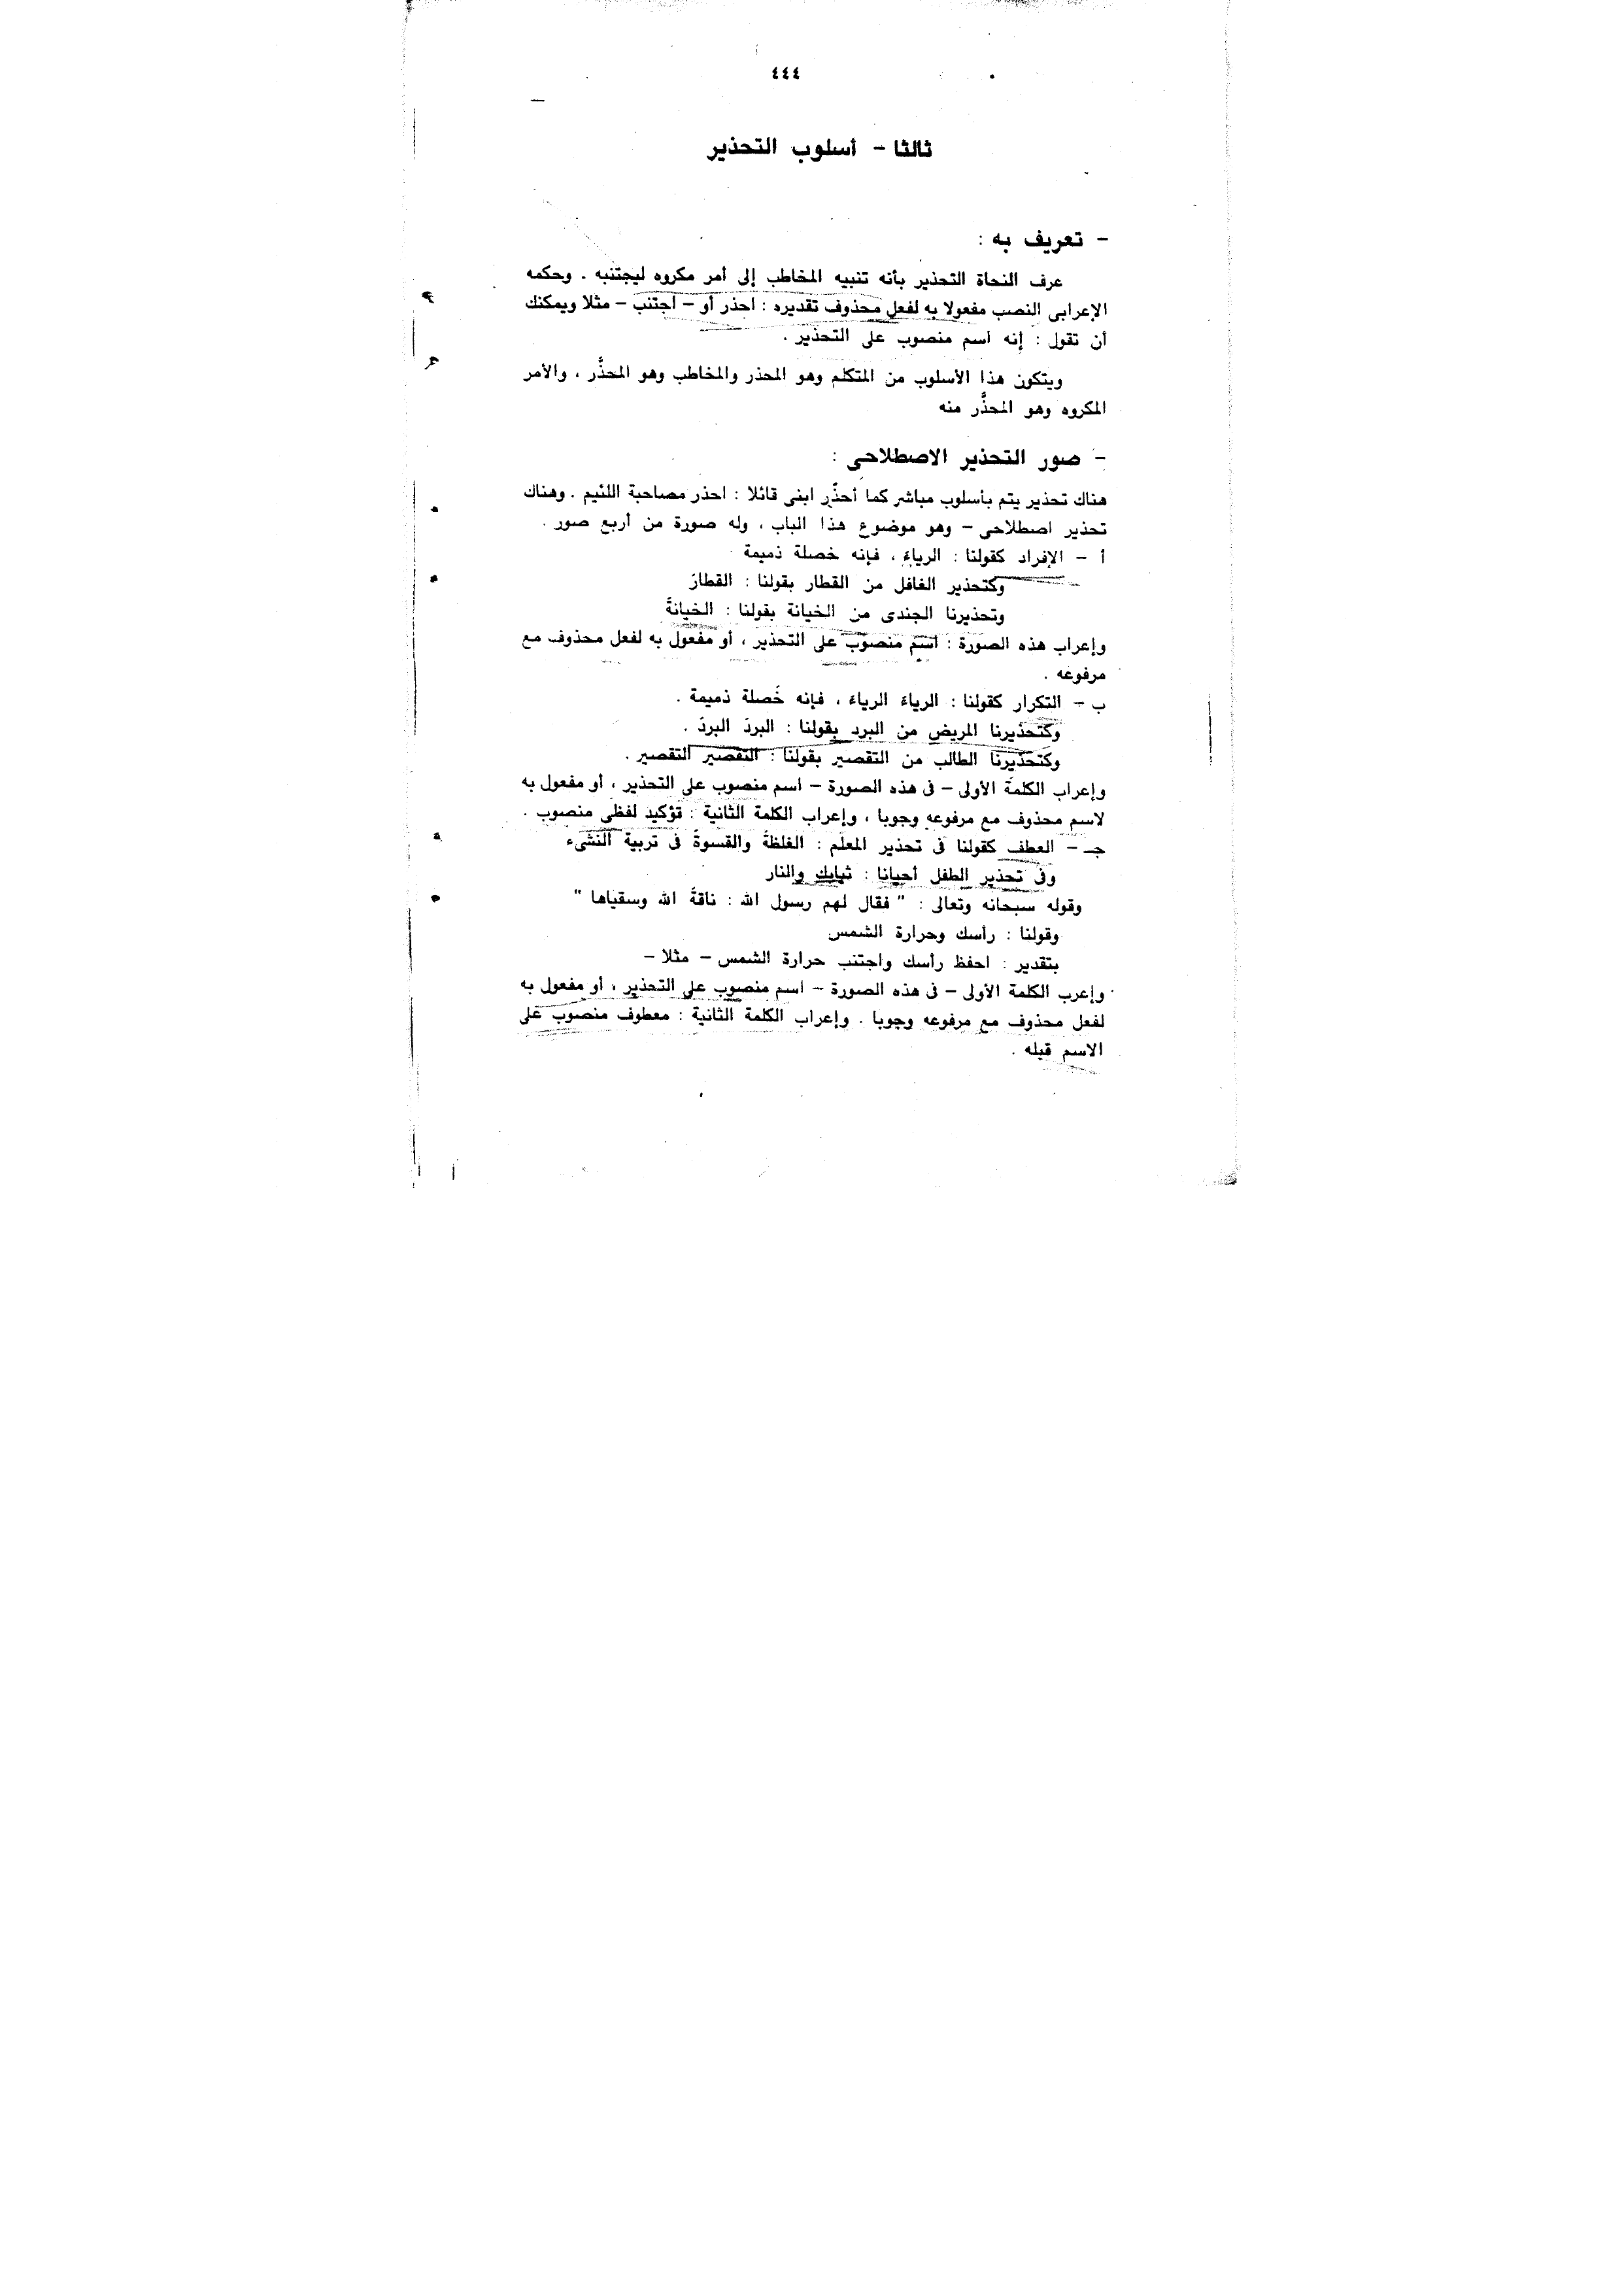 ٤٤٤
ثالثا - أسلوب التحذير
- تعريف به :
عرف النحاة التحذير بأنه تنبيه المخاطب إلى أمر مكروه ليجتنبه . وحكمه
الإعرابى النصب مفعولا به لفعل محذوف تقديره : احذر أو - اجتنب - مثلا ويمكنك
أن تقول : إنه اسم منصوب على التحذير .
ويتكون هذا الأسلوب من المتكلم وهو المحذر والمخاطب وهو المحذَّر ، والأمر
المكروه وهو المحذَّر منه
- صور التحذير الاصطلاحى :
هناك تحذير يتم بأسلوب مباشر كما أحذِّر ابنى قائلا : احذر مصاحبة اللئيم . وهناك
تحذير اصطلاحى - وهو موضوع هذا الباب ، وله صورة من أربع صور .
أ - الإفراد كقولنا : الرياءَ ، فإنه خصلة ذميمة
وكتحذير الغافل من القطار بقولنا : القطارَ
وتحذيرنا الجندى من الخيانة بقولنا : الخيانةَ
وإعراب هذه الصورة : اسم منصوب على التحذير ، أو مفعول به لفعل محذوف مع
مرفوعه .
ب - التكرار كقولنا : الرياءَ الرياءَ ، فإنه خَصلة ذميمة .
وكتحذيرنا المريض من البرد بقولنا : البردَ البردَ .
وكتحذيرنا الطالب من التقصير بقولنا : التقصير التقصير .
وإعراب الكلمة الأولى - فى هذه الصورة - اسم منصوب على التحذير ، أو مفعول به
لاسم محذوف مع مرفوعه وجوبا ، وإعراب الكلمة الثانية : توكيد لفظى منصوب .
جـ - العطف كقولنا فى تحذير المعلم : الغلظةَ والقسوةَ فى تربية النشىء
وفى تحذير الطفل أحيانا : ثيابك والنار
وقوله سبحانه وتعالى : " فقال لهم رسول الله : ناقةَ الله وسقياها "
وقولنا : رأسك وحرارة الشمس
بتقدير : احفظ رأسك واجتنب حرارة الشمس - مثلا -
وإعرب الكلمة الأولى - فى هذه الصورة - اسم منصوب على التحذير ، أو مفعول به
لفعل محذوف مع مرفوعه وجوبا . وإعراب الكلمة الثانية : معطوف منصوب على
الاسم قبله .